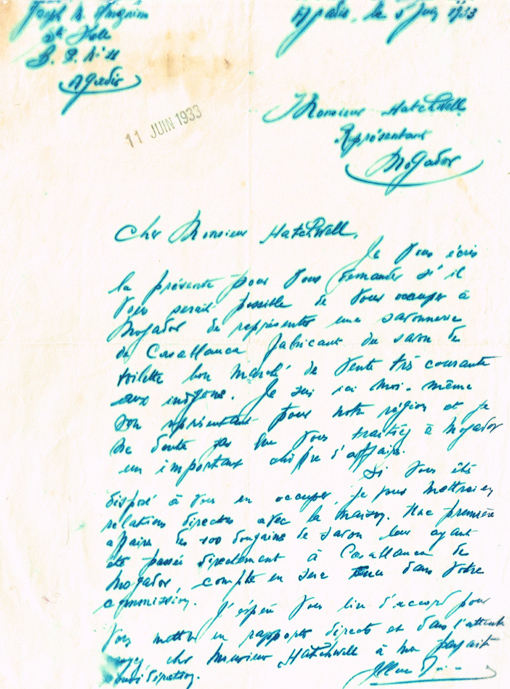 Agadir, le 5 Juin 1933
Joseph
B. P. N° 
Agadir
11 JUIN 1933
Monsieur Hatchwell
Représentant
Mogador
Cher Monsieur Hatchwell,
Je vous écris
la présente pour vous demander s'il
vous serait possible de vous occuper à
Mogador de représenter une savonnerie
de Casablanca fabricant du savon de
toilette bon marché de vente très courante
aux indigène. Je suis ici moi-même
son représentant pour notre région et je
ne doute pas que vous traitiez à Mogador
un important chiffre d'affaire.
Si vous été
disposé à vous en occuper, je vous mettrai en
relations directes avec la maison. Une première
affaire de 100 douzaine de savon leur ayant
été passée directement à Casablanca de
Mogador, compte en sera tenu dans votre
commission.
J'espère vous lire d'accord pour
vous mettre en rapports directs et dans l'attente
cher Monsieur Hatchwell à ma parfait
considération.